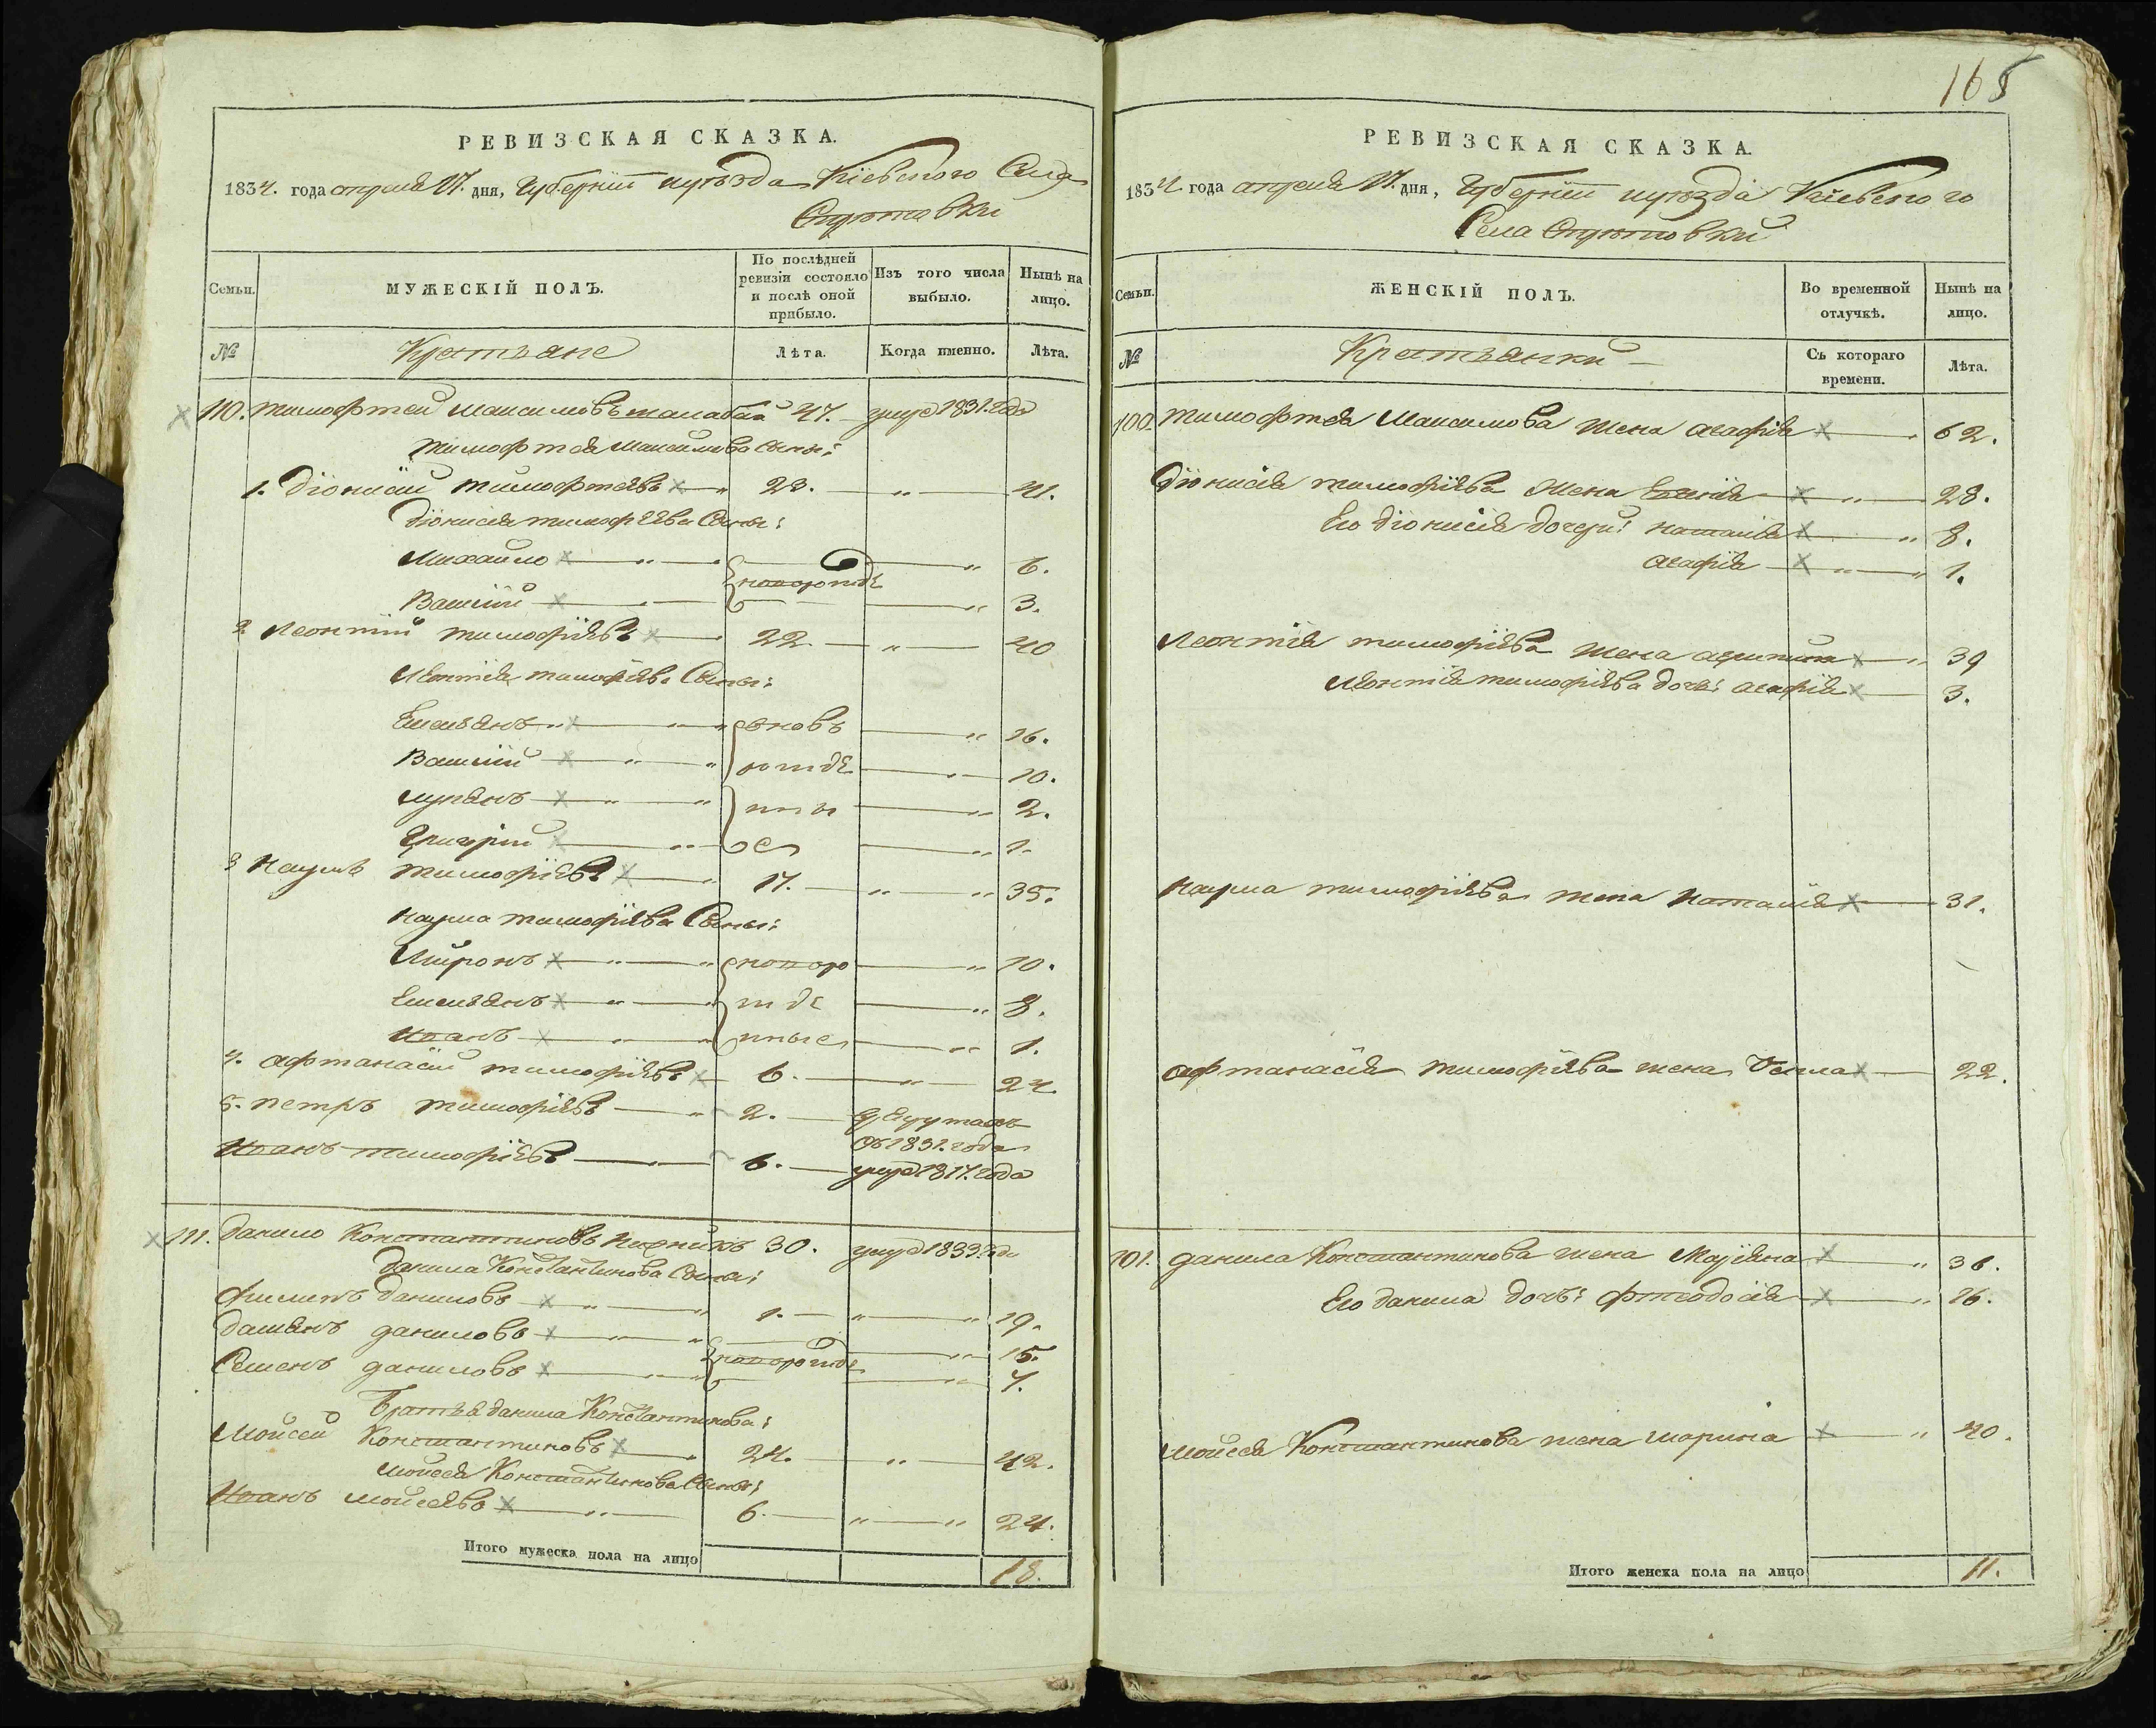 165
РЕВИЗСКАЯ СКАЗКА.
1834. года апреля 17. дня, Губерніи и уѣзда Кіевского Села
МУЖЕСКІЙ ПОЛЪ.
Семьи.
По послѣдней ревизіи состояло и послѣ оной прибыло.
Изъ того числа выбыло.
Нынѣ на лицо.
№
Крестьяне
Лѣта.
Когда именно.
Лѣта.
110. тимофтей Максимовъ 47. умре 1831. года
тимофтея Максимова Сыны:
1. Діонисій тимофтеявъ 23. 41.
Діонисія тимофіява Сыны:
Михайло новорожде 6.
Василій 3.
2 Леонтій тимофіявъ 22 40
Леонтія тимофіява Сыны:
Емельянъ вновь 16.
Василій рожде 10.
Лукянъ нны 2.
Григорій е 1.
3 Наумъ тимофіявъ 17. 35.
Наума тимофіява Сыны:
Миронъ новоро 10.
Емельянъ жде 8.
Иванъ нные 1.
4. афтанасій тимофіявъ 6. 24
5. петръ тимофіявъ 2. в рекрутахъ
съ 1831. года
Иванъ тимофіявъ 6. умре 1817. года
111. Данило Константиновъ 30. умре 1833. года
Данила Константинова Сыны:
Филипъ Даниловъ 1. 19.
Дамянъ даниловъ новорожде 15.
Семенъ даниловъ 7.
Братья данила Константинова:
Мойсей Константиновъ 24. 42.
Мойсея Константинова Сыны:
Иванъ мойсеявъ 6. 24.
Итого мужеска пола на лицо 18.
РЕВИЗСКАЯ СКАЗКА.
1834 года апреля 17. дня, Губерніи и уѣзда Кіевского
Села
Семьи.
ЖЕНСКІЙ ПОЛЪ.
Во временной отлучкѣ.
Нынѣ на лицо.
№
Крестьянки
Съ котораго времени.
Лѣта.
100. тимофтея Максимова жена агафія 62.
Діонисія тимофіява жена 28.
Его Діонисія дочери: наталія 8.
агафія 1.
Леонтія тимофіява жена 39
Леонтія тимофіява дочь: агафія 3.
Наума тимофіява жена Наталія 31.
афтанасія тимофіява жена Фекла 22.
101. данила Константинова жена Маріяна 36.
Его данила дочь: фтеодосія 16.
Мойсея Константинова жена марина 40.
Итого женска пола на лицо 11.